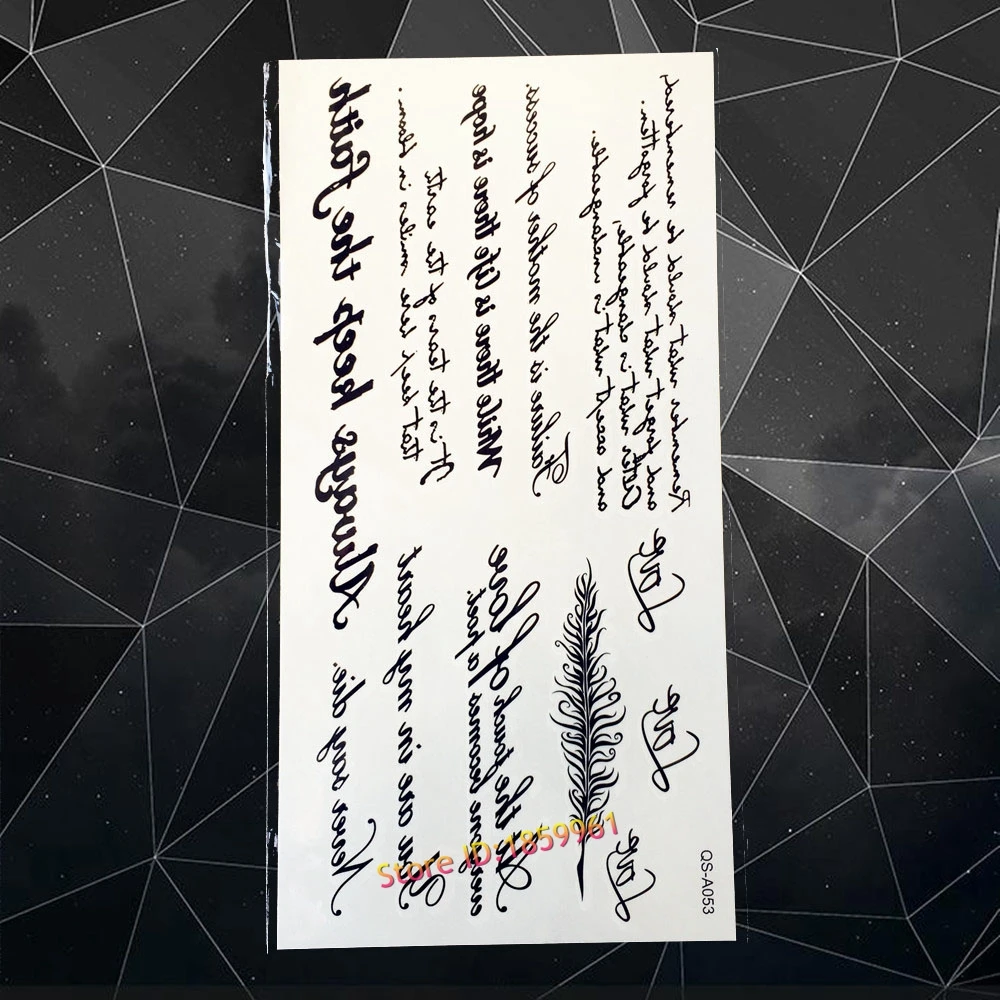 Always keep the Faith
It is the tears of the earth
that keep her smiles in bloom.
While there is life there is hope
Failure is the mother of success
Remember what should be remembered,
and forget what should be forgotten.
Alter what is changeable,
and accept what is unchangeable.
Never say die.
You are in my heart
At the touch of love
everyone becomes a poet.
Love
Love
Love
Store ID:1859961
QS-A053